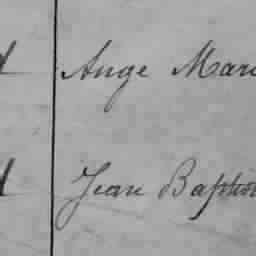 Ange Mari
Jean Baptis